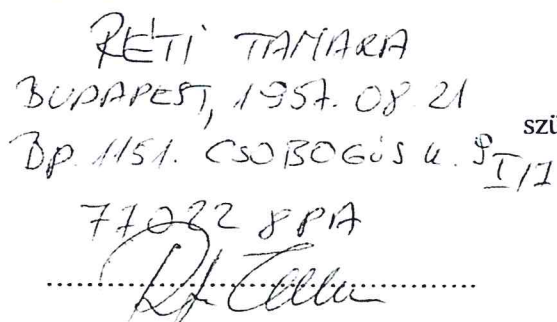 RÉTI TAMARA
BUDAPEST, 1957. 08. 21
szü
Bp. 1151. CSOBOGÓS u. 9 I/1
770228PA